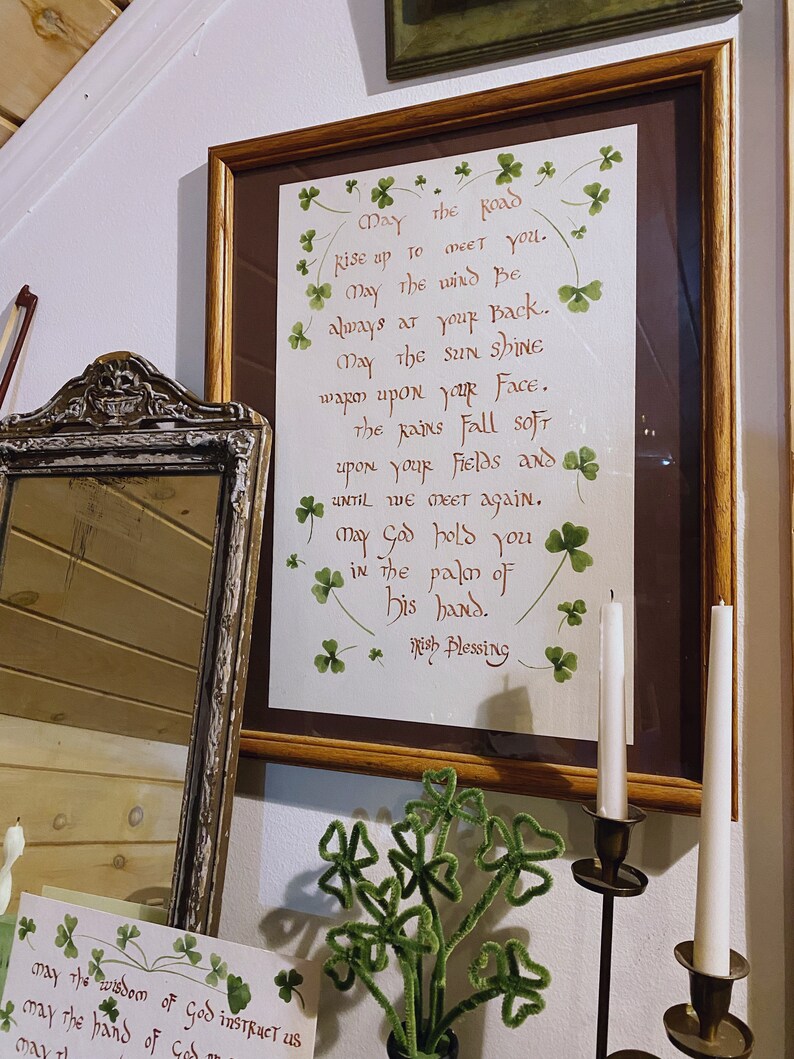 May the Road
Rise up to meet you.
May the wind Be
always at your Back.
May the sun shine
warm upon your Face.
the rains Fall soft
upon your Fields and
until we meet again.
May God hold you
in the palm of
his hand.
irish Blessing
may the wisdom of God instruct us
may the hand of God
may th